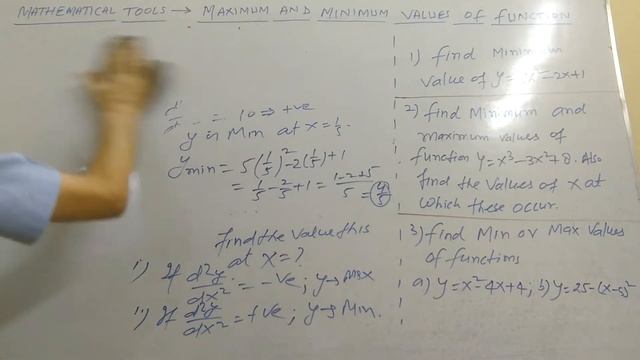 MATHEMATICAL TOOLS → MAXIMUM AND MINIMUM VALUES OF FUNCTION
= 10 ⇒ +ve
y is Min at x = 1/5.
y min = 5(1/5)² - 2(1/5) + 1
= 1/5 - 2/5 + 1 = (1-2+5)/5 = 4/5
find the value this
at x = ?
i) If d²y/dx² = -ve; y → Max
ii) If d²y/dx² = +ve; y → Min.
1) find Minimum
value of y = x² - 2x + 1
2) find Minimum and
maximum values of
function y = x³ - 3x² + 8. Also
find the values of x at
which these occur.
3) find Min or Max values
of functions
a) y = x² - 4x + 4; b) y = 25 - (x-5)²